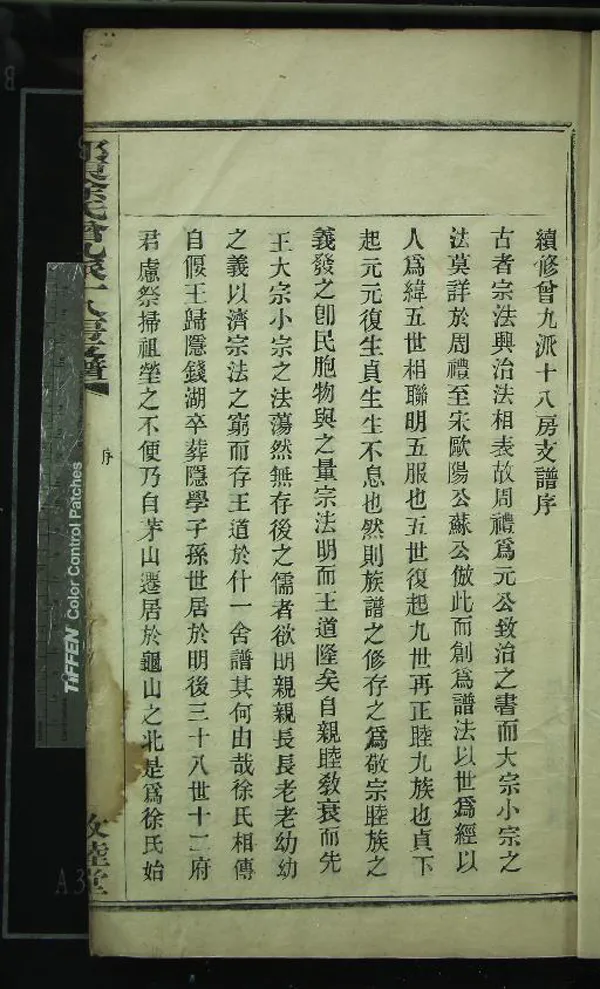 續修曾九派十八房支譜序
古者宗法興治法相表故周禮爲元公致治之書而大宗小宗之
法莫詳於周禮至宋歐陽公蘇公倣此而創爲譜法以世爲經以
人爲緯五世相聯明五服也五世復起九世再正睦九族也貞下
起元元復生貞生生不息也然則族譜之修存之爲敬宗睦族之
義發之卽民胞物與之量宗法明而王道隆矣自親睦敎衰而先
王大宗小宗之法蕩然無存後之儒者欲明親親長長老老幼幼
之義以濟宗法之窮而存王道於什一舍譜其何由哉徐氏相傳
自偃王歸隱錢湖卒葬隱學子孫世居於明後三十八世十二府
君慮祭掃祖塋之不便乃自茅山遷居於龜山之北是爲徐氏始
序
敦睦堂
TIFFEN Color Control Patches